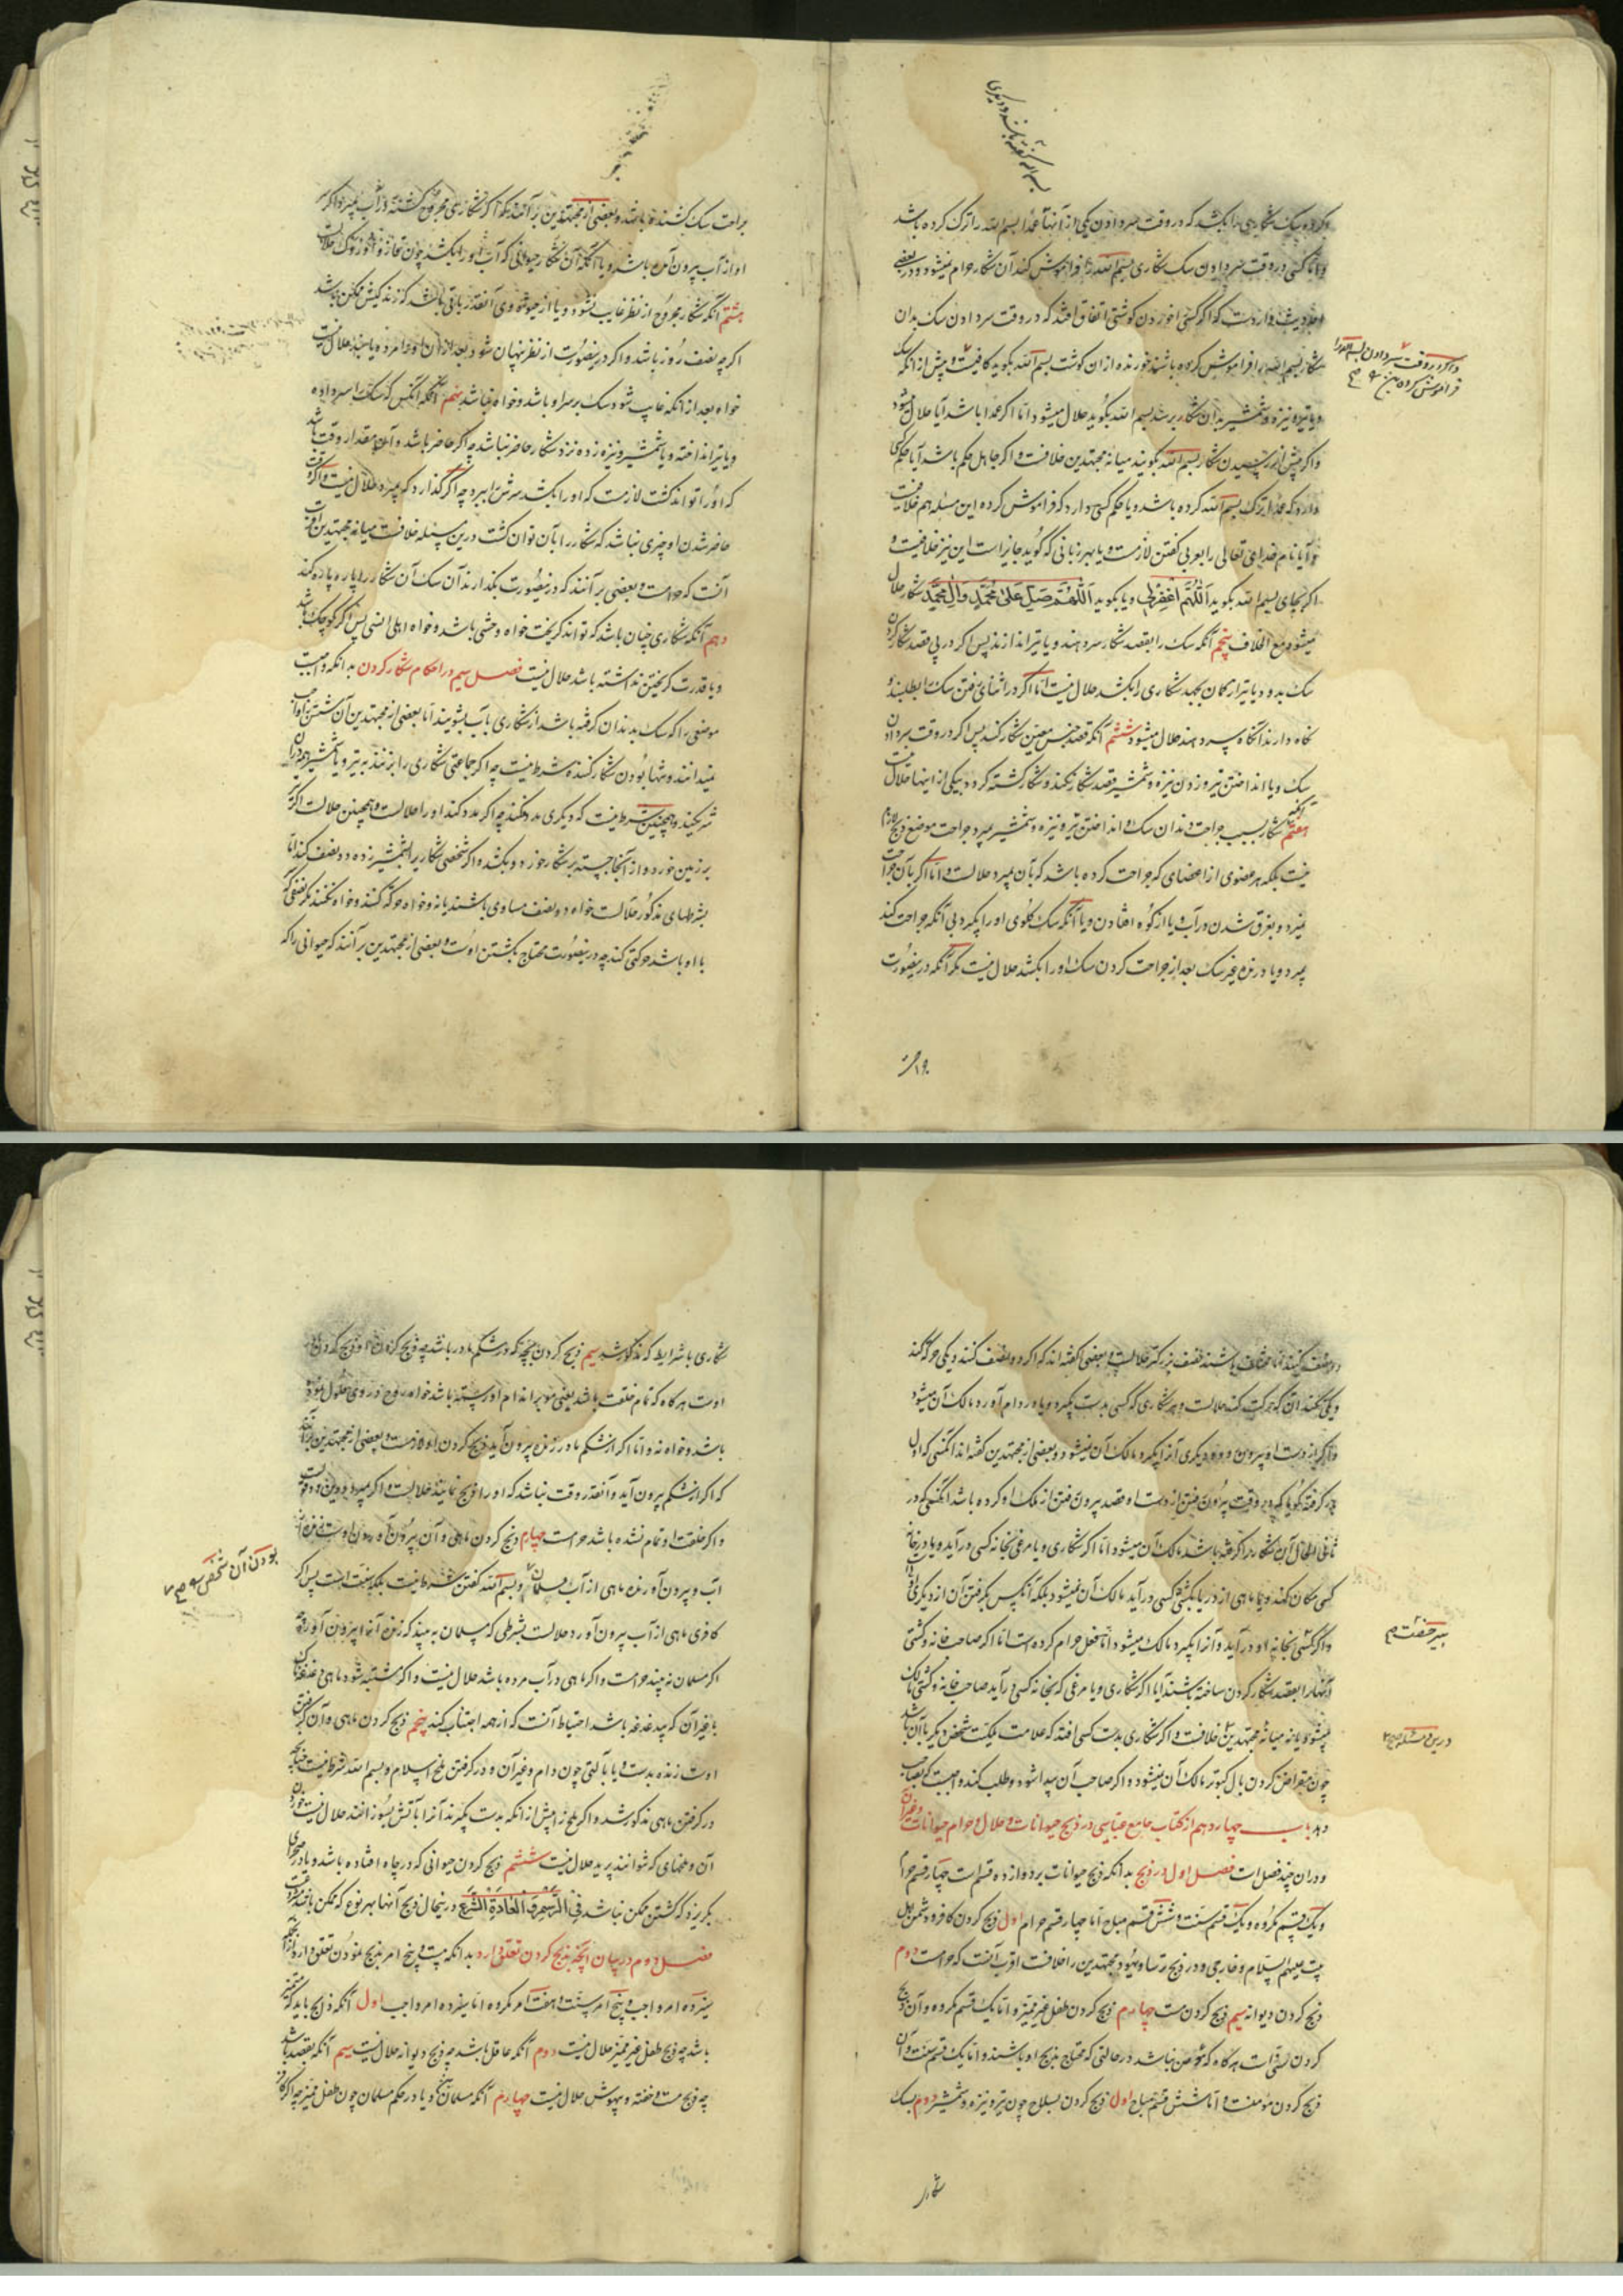 و کرده سک شکاری را بکشد که در وقت سر دادن یکی از آنها عمداً بسم الله را ترک کرده باشد
و اما کسی در وقت سر دادن سک شکاری بسم الله را فراموش کند آن شکار حرام نمیشود و در بعضی
احادیث وارد است که اگر کسی را خوردن گوشتی اتفاق افتد که در وقت سر دادن سک بدان
شکار بسم الله را فراموش کرده باشند خورنده از ان گوشت بسم الله بگوید کافیست و پیش از آنکه
و یا تیر و نیزه و شمشیر بدان شکار برسد بسم الله بگوید حلال میشود اما اگر عمدا باشد آیا حلال میشود
و اگر پیش از رسیدن شکار بسم الله بگویند میانه مجتهدین خلافست و اگر جاهل حکم باشد آیا حکم کسی
دارد که عمدا ترک بسم الله کرده باشد و یا حکم کسی دارد که فراموش کرده این مسئله هم خلافیست
و آیا نام خدای تعالی را بعربی گفتن لازمست و یا بهر زبانی که گوید جایز است این نیز خلافیست و
اگر بجای بسم الله بگوید اللهم اغفر لی و یا بگوید اللهم صل علی محمد و آل محمد شکار حلال
میشود مع الخلاف پنجم آنکه سک را بقصد شکار سر دهند و یا تیر اندازند پس اگر در پی قصد شکار کردن
سک بدود و یا تیر از کمان بجهد شکاری را بکشد حلال نیست اما اگر در اثنای رفتن سک را بطلبند و
نکاه دارند آنکاه سر دهند حلال میشود ششم آنکه قصد جنس معین شکار کند پس اگر در وقت سر دادن
سک و یا انداختن تیر و زدن نیزه و شمشیر قصد شکار نکند و شکار کشته کردد بیکی از اینها حلال نیست
هفتم آنکه شکار بسبب جراحت دندان سک و انداختن تیر و نیزه و شمشیر بمیرد و جراحت موضع ذبح لازم
نیست بلکه هر عضوی از اعضای که جراحت کرده باشد که بآن بمیرد حلالست و اما اگر بآن جراحت
نمیرد و بغرق شدن در آب و یا از کوه افتادن و یا آنکه سک کلوی او را بگیرد بی آنکه جراحت کند
بمیرد و یا درنده غیر سک بعد از جراحت کردن سک او را بکشد حلال نیست مگر آنکه در بنصورت
بسم الله گفته باشند و دیگری
و اگر در وقت سر دادن بسم الله را
فراموش کرده
جراحت
جراحت سک کشنده باشد و بعضی از مجتهدین بر آنند که اگر شکاری مجروح گشته در آب بمیرد و اگر سر
او از آب بیرون آمده باشد و یا آنکه آن شکار حیوانی که آب او را بکشد چون قاز و
هشتم آنکه شکار مجروح از نظر غایب نشود و یا از حیوة وی آنقدر باقی باشد که زندکیش ممکن باشد
اگر چه نصف روز باشد و اگر در بنصورت از نظر پنهان شود بعد از ان او را مرده یابند حلال نیست
خواه بعد از آنکه غایب شود سک بر سر او باشد و خواه نباشد نهم آنکه آنکس که سک را سر داده
و یا تیر انداخته و یا شمشیر و نیزه زده نزد شکار حاضر نباشد چه اگر حاضر باشد و آن مقدار وقت باشد
که او را تواند کشت لازمست که او را بکشد سرش را ببرد چه اگر گذارد که بمیرد حلال نیست و اگر وقت
حاضر شدن او چیزی نباشد که شکار را بآن توان کشت درین مسئله خلافست میانه مجتهدین اقرب
آنست که حرامست و بعضی بر آنند که در بنصورت بگذارند آن سک آن شکار را پاره پاره کند
دهم آنکه شکاری چنان باشد که تواند کریخت خواه وحشی باشد و خواه اهلی انسی پس اگر کوچک باشد
و یا قدرت کریختن نداشته باشد حلال نیست فصل سیم در احکام شکار کردن بدانکه واجبست
موضعی را که سک بدندان گرفته باشد از شکاری بآب بشویند اما بعضی از مجتهدین آن شستن را واجب
نمیدانند و تنها بودن شکار کننده شرط نیست چه اگر جماعتی شکاری را بزنند به تیر و یا شمشیر همه در ان
شریکند و همچنین شرط نیست که دیگری مدد نکند چه اگر مدد کند او را حلالست و همچنین حلالست اگر تیر
بر زمین خورد و از آنجا جسته بر شکار خورد و بکشد و اگر شخصی شکار را بشمشیر زده دو نصف کند اما
بشرطهای مذکور حلالست خواه دو نصف مساوی باشند یا نه و خواه حرکت کنند و خواه نکنند مگر نصفی که
با او باشد حرکتی کند چه در بنصورت محتاج بکشتن اوست و بعضی از مجتهدین بر آنند که حیوانی را که
دو نصف کنند اما مختلف باشند نصف بزرگتر حلالست و بعضی گفته اند که اگر دو نصف کنند و یکی حرکت کند
و یکی نکند آن که حرکت کند حلالست و هر شکاری که کسی بدست بگیرد و یا در دام آورد مالک آن میشود
و اگر از دست او بیرون رود و دیگری آنرا بگیرد مالک آن نمیشود و بعضی از مجتهدین گفته اند آنکسی که اول
گرفته گویا که در وقت بیرون رفتن از دست او قصد بیرون رفتن از ملک او کرده باشد آنکسی که در
ثانی الحال آن شکار را گرفته باشد مالک آن میشود اما اگر شکاری و یا مرغی بخانه کسی در آید و یا در خانه
کسی مکان کند و یا ماهی از دریا بکشتی کسی در آید مالک آن نمیشود بلکه آنکس بگرفتن آن از دیگری اولیست
و اگر کسی بخانه او در آید و آنرا بگیرد مالک میشود اما فعل حرام کرده است اما اگر صاحب خانه و کشتی
آنها را بقصد شکار کردن ساخته باشند آیا اگر شکاری و یا مرغی که بخانه کسی در آید صاحب خانه و کشتی مالک
میشود یا نه میانه مجتهدین خلافست و اگر شکاری بدست کسی افتد که علامت ملکیت شخص دیگر با آن باشد
چون مقراض کردن بال کبوتر مالک آن نمیشود و اگر صاحب آن پیدا شود و طلب کند واجبست که بصاحب
دهد باب چهاردهم از کتاب جامع عباسی در ذبح حیوانات و حلال و حرام حیوانات و غیر آن
و در ان چند فصل است فصل اول در ذبح بدانکه ذبح حیوانات بر دوازده قسم است چهار قسم حرام
و یک قسم مکروه و یک قسم سنت و شش قسم مباح اما چهار قسم حرام اول ذبح کردن کافر و دشمن اهل
بیت علیهم السلام و خارجی و در ذبح ترسا و یهود مجتهدین را خلافست اقرب آنست که حرامست دوم
ذبح کردن دیوانه سیم ذبح کردن مست چهارم ذبح کردن طفل غیر ممیز و اما یک قسم مکروه و آن ذبح
کردن سنی است هر گاه که مومن نباشد در حالتی که محتاج بذبح او باشند و اما یک قسم سنت و آن
ذبح کردن مومنست و اما شش قسم مباح اول ذبح کردن بسلاح چون تیر و نیزه و شمشیر دوم بسک
شکاری
شکاری با شرایط که مذکور شد سیم ذبح کردن بچه که در شکم مادر باشد چه ذبح کردن مادر او ذبح کردن
اوست هر گاه که تمام خلقت باشد یعنی مو بر اندام او رسته باشد خواه روح در وی حلول نموده
باشد و خواه نه و اما اگر از شکم مادر زنده بیرون آید ذبح کردن او لازمست و بعضی از مجتهدین بر آنند
که اگر از شکم بیرون آید و آنقدر وقت نباشد که او را ذبح نمایند حلالست و اگر بمیرد
و اگر خلقت او تمام نشده باشد حرامست چهارم ذبح کردن ماهی و آن بیرون آوردن اوست زنده از
آب و بیرون آورنده ماهی از آب مسلمان و بسم الله گفتن شرط نیست بلکه سنت است پس اگر
کافری ماهی از آب بیرون آورد حلالست بشرطی که مسلمان به بیند که زنده آنرا بیرون آورده
اگر مسلمان نه بیند حرامست و اگر ماهی در آب مرده باشد حلال نیست و اگر مشتبه شود ماهی دغدغه ناک
با غیر آن که بیدغدغه باشد احتیاط آنست که از همه اجتناب کند پنجم ذبح کردن ملخ و آن گرفتن
اوست زنده بدست و یا بآلتی چون دام و غیر آن و در گرفتن ملخ اسلام و بسم الله شرط نیست چنانچه
در گرفتن ماهی مذکور شد و اگر ملخ را پیش از آنکه بدست بگیرند آنرا بآتش بسوزانند حلال نیست خوردن
آن و ملخهای که نتوانند پرید حلال نیست ششم ذبح کردن حیوانی که در چاه افتاده باشد و یا در صحرای
بگریزد که کشتن ممکن نباشد فی الرسم و العادة الشرع در بنحال ذبح آنها بهر نوع که ممکن باشد
فصل دوم در بیان آنچه بذبح کردن تعلق دارد بدانکه بیست و پنج امر بذبح نمودن تعلق دارد
سیزده امر واجب و پنج امر سنت و هفت امر مکروه اما سیزده امر واجب اول آنکه ذابح باید که ممیز
باشد چه ذبح طفل غیر ممیز حلال نیست دوم آنکه عاقل باشد چه ذبح دیوانه حلال نیست سیم آنکه بقصد باشد
چه ذبح مست و خفته و بیهوش حلال نیست چهارم آنکه مسلمان و یا در حکم مسلمان چون طفل ممیز چه اگر کافر
بودن آن شخص